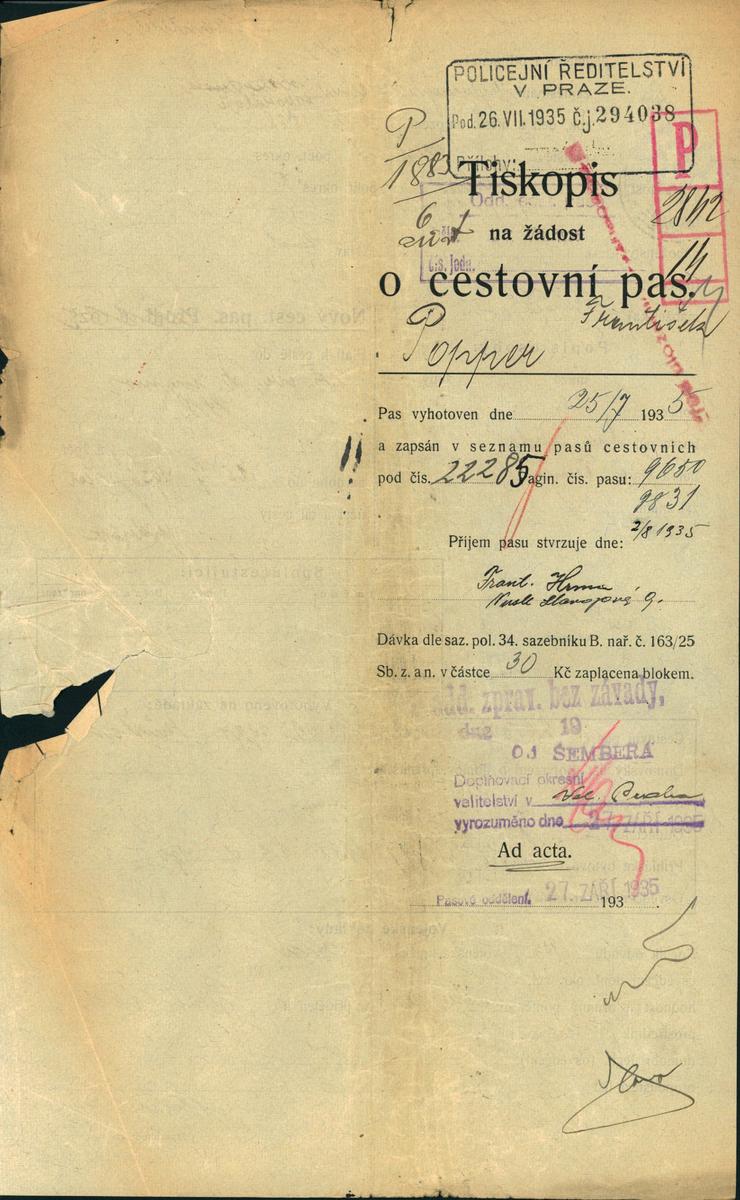 POLICEJNÍ ŘEDITELSTVÍ
V PRAZE.
Pod. 26.VII.1935 č.j. 294038
Přílohy:
P
1883
P
2842
14
Tiskopis
na žádost
o cestovní pas.
František
Popper
Pas vyhotoven dne 25/7 1935
a zapsán v seznamu pasů cestovních
pod čís. 22285 agin. čís. pasu: 9650
9831
Příjem pasu stvrzuje dne: 2/8 1935
Frant.
Dávka dle saz. pol. 34. sazebníku B. nař. č. 163/25
Sb. z. a n. v částce 30 Kč zaplacena blokem.
Odd. zprav. bez závady,
dne 19
OJ ŠEMBERA
Doplňovací okresní
velitelství v Vel. Praha
vyrozuměno dne 27. ZÁŘÍ 1935
Ad acta.
Pasové oddělení. 27. ZÁŘÍ 1935
193